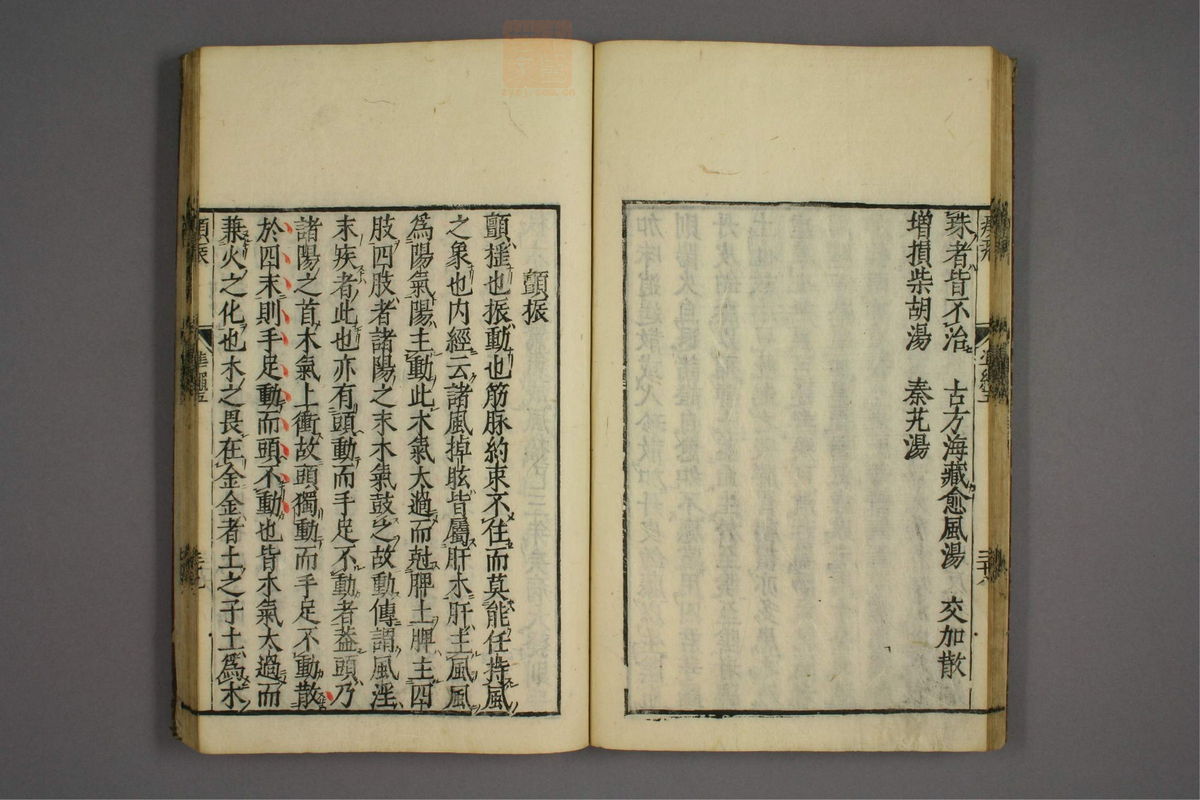 珠者皆不治　古方海藏愈風湯　交加散
增損柴胡湯　秦艽湯
顫振
顫搖也振動也筋脉約束不住而莫能任持風
之象也内經云諸風掉眩皆屬肝木肝主風風
爲陽氣陽主動此木氣太過而尅脾土脾主四
肢四肢者諸陽之末木氣鼓之故動傳謂風淫
末疾者此也亦有頭動而手足不動者葢頭乃
諸陽之首木氣上衝故頭獨動而手足不動散
於四末則手足動而頭不動也皆木氣太過而
兼火之化也木之畏在金金者土之子土爲木
顫振